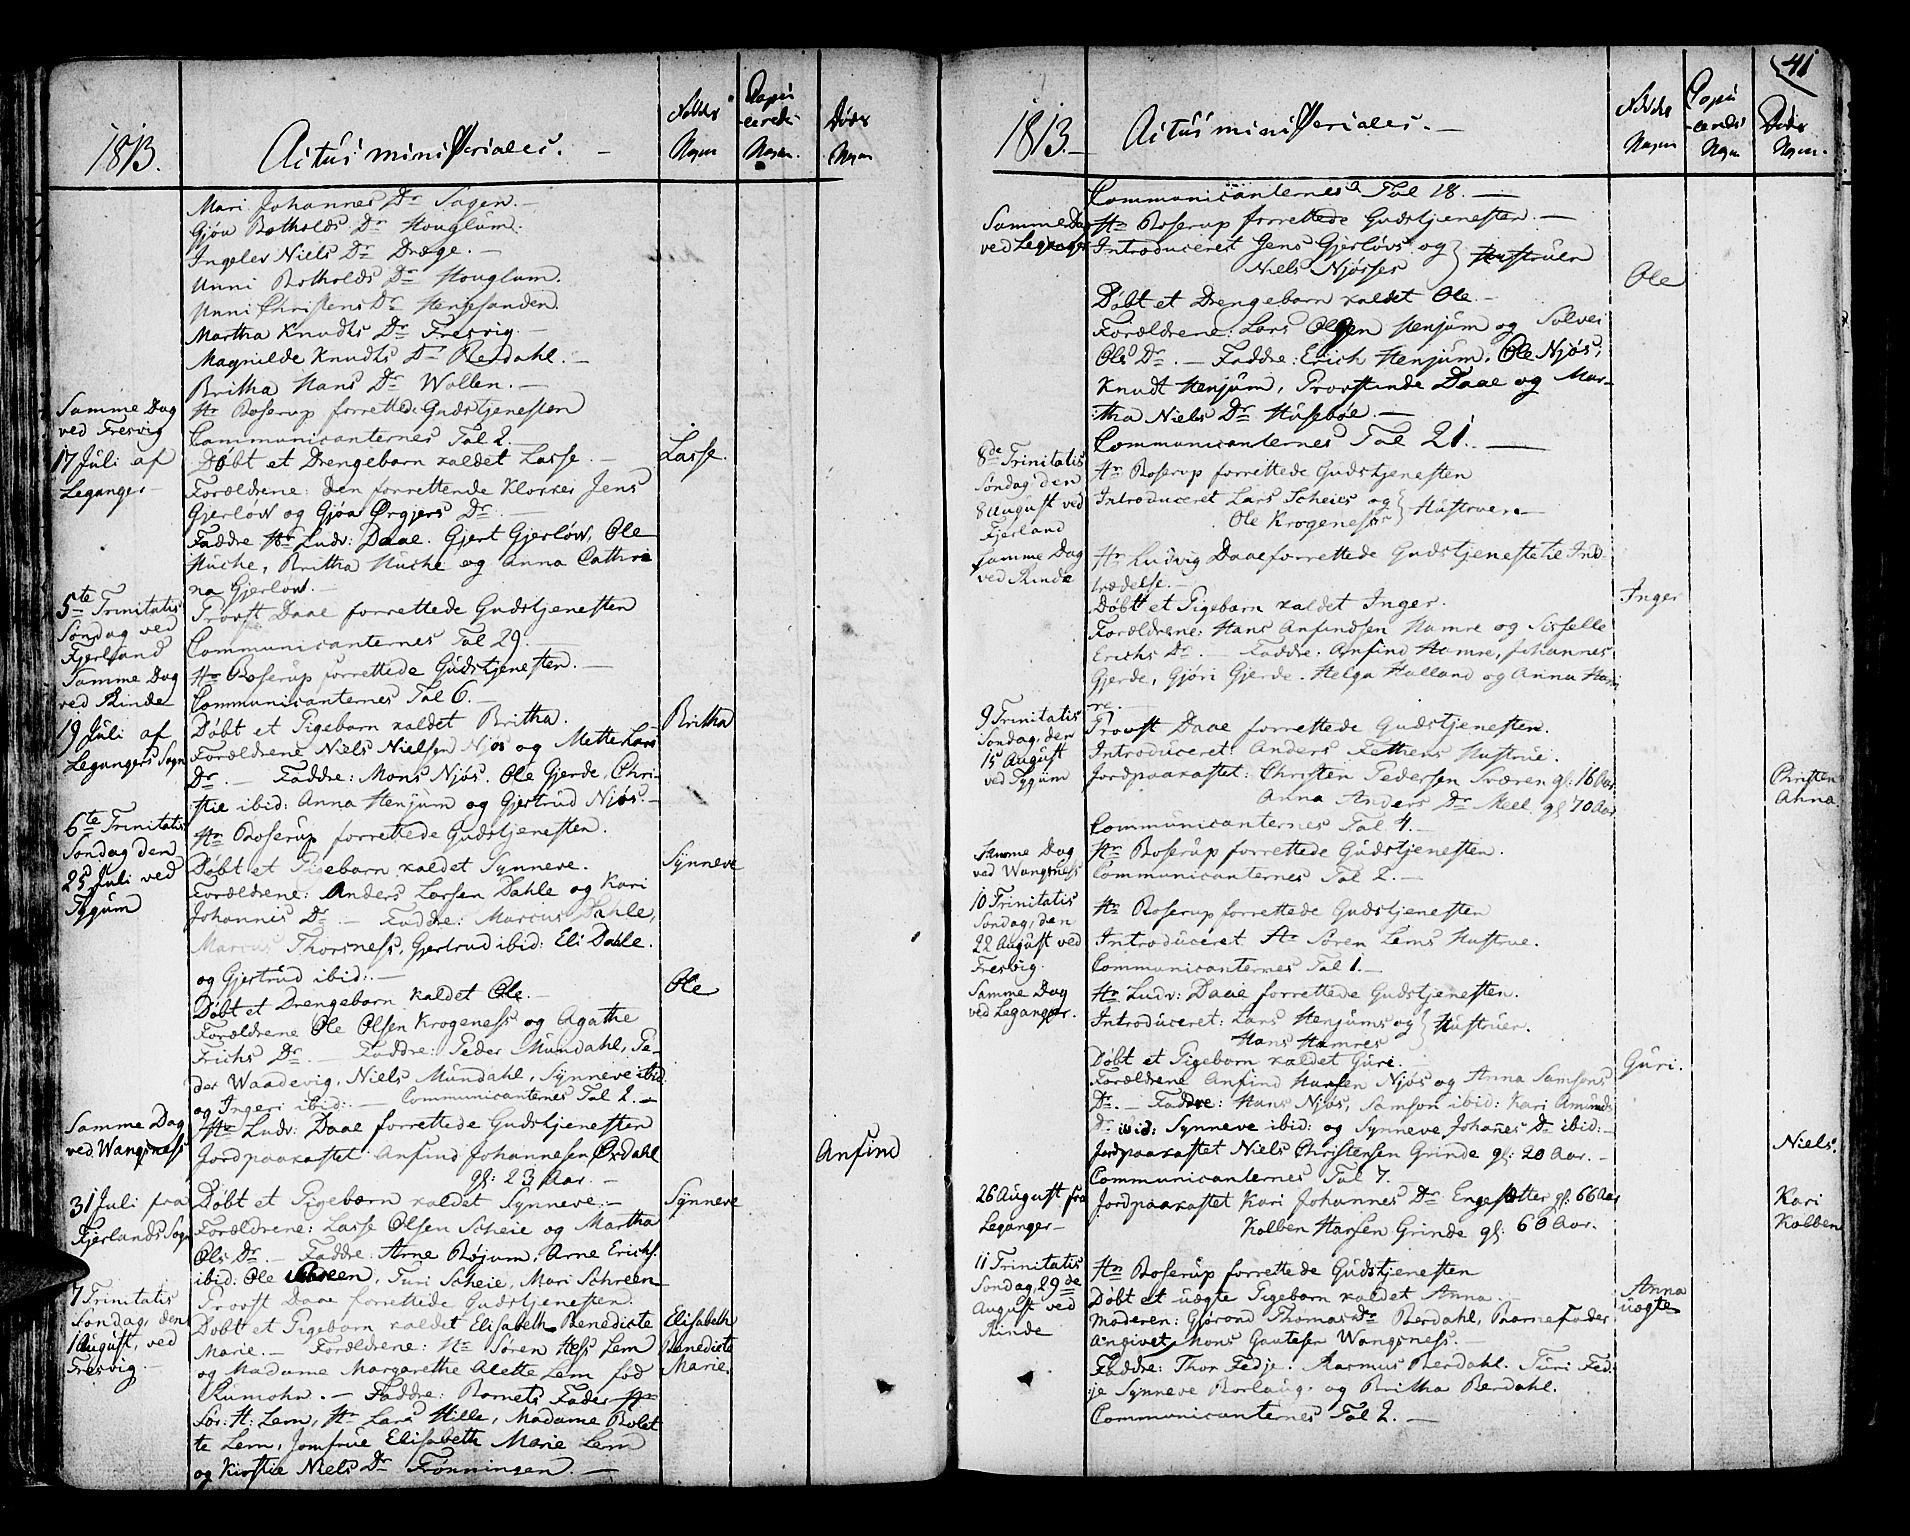 1813.
Actus ministeriales.
Døbtes Nagvn
Copulerede Nagvn.
Dødes Nagvn
Mari Johannes Dr Sagen.
Gjøa Botholds Dr Houglum.
Ingelev Niels Dr Dræge.
Unni Botholds Dr Houglum.
Unni Christens Dr Hengesanden.
Martha Knudts Dr Fresvig
Magnilde Knudts Dr Berdahl.
Britha Hans Dr Wollen.
Samme Dag
ved Fresvig
Hr Boserup forrettede Gudstjenesten
Communicanternes Tal 2.
17 Juli af
Leganger
Døbt et Drengebarn kaldet Lasse.
Lasse.
Forældrene: den forrettende Klokker Jens
Gjerløw og Gjøa Ørgjers Dr.
Faddre Hr Ludv: Daae. Gjert Gjerløw, Ole
Huche, Britha Huche og Anna Cathri
na Gjerløw.
5te Trinitatis
Søndag ved
Fjerland
Provst Daae forrettede Gudstjenesten
Communicanternes Tal 29.
Samme Dag
ved Rinde
Hr Boserup forrettede Gudstjenesten.
Communicanternes Tal 6.
19 Juli af
Legangers Sogn
Døbt et Pigebarn kaldet Britha.
Britha
Forældrene Niels Nielsen Njøs og Mette Lars
Dr. Faddre: Mons Njøs. Ole Gjerde, Chri-
stie ibid: Anna Henjum og Gjertrud Njøs.
6te Trinitatis
Søndag den
25 Juli ved
Tygum
Hr Boserup forrettede Gudstjenesten.
Døbt et Pigebarn kaldet Synneve.
Synneve
Forældrene: Anders Larsen Dahle og Kari
Johannis Dr. Faddre: Marcus Dahle,
Marcus Thorsness, Gjertrud ibid: Eli Dahle.
og Gjertrud ibid:
Døbt et Drengebarn kaldet Ole.
Ole
Forældrene Ole Olsen Krogeness og Agathe
Erichs Dr. Faddre: Peder Mundahl, Pe-
der Waadevig, Niels Mundahl, Synneve ibid
og Ingeri ibid: Communicanternes Tal 2.
Samme Dag
ved Wangsness
Hr Ludv: Daae forrettede Gudstjenesten
Jordpaakastet Anfind Johannesen Oxdahl
gl: 23 Aar.
Anfind
31 Juli fra
Fjerlands Sogn
Døbt et Pigebarn kaldet Synneve.
Synneve
Forældrene: Lasse Olsen Scheie og Martha
Ols Dr. Faddre: Arne Bøjum, Arne Erichs.
ibid: Ole Schreen, Turi Scheie, Mari Schreen
7 Trinitatis
Søndag, den
1 August, ved
Fresvig
Provst Daae forrettede Gudstjenesten.
Døbt et Pigebarn kaldet Elisabeth Benedicte
Marie. Forældrene: Hr Søren Hess Lem
Elisabeth
Benedicte
Marie.
og Madame Margarethe Alette Lem fød
Rumohr. Faddre: Barnets Fader Hr
Sør: H: Lem, Hr Lars Hille, Madame Bolet
te Lem, Jomfrue Elisabeth Marie Lem
og Kirstie Niels Dr Frønningen.
41
1813.
Actus ministeriales.
Døbtes Nagvn
Copulerede Nagvn
Dødes Nagvn.
Communicanternes Tal 18.
Samme Dag
ved Leganger
Hr Boserup forrettede Gudstjenesten.
Introduceret Jens Gjerløvs og
Niels Njøsses
Hustruer
Døbt et Drengebarn kaldet Ole.
Ole
Forældrene: Lars Olsen Henjum og Solvei
Ols Dr. Faddre: Erich Henjum, Ole Njøs,
Knudt Henjum, Provstinde Daae og Mar-
tha Niels Dr Husebøe.
Communicanternes Tal 21.
8de Trinitatis
Søndag den
8 August ved
Fjerland
Hr Boserup forrettede Gudstjenesten
Introduceret Lars Scheies og
Ole Krogeness
Hustruer.
Samme Dag
ved Rinde
Hr Ludvig Daae forrettede Gudstjeneste Ind
trædelse.
Døbt et Pigebarn kaldet Inger.
Inger
Forældrene: Hans Anfindsen Hamre og Sisselle
Erichs Dr. Faddre: Anfind Hamre, Johannes
Gjerde, Gjøri Gjerde. Helga Halland og Anna Ham
re.
9 Trinitatis
Søndag, den
15 August
ved Tygum
Provst Daae forrettede Gudstjenesten.
Introduceret: Anders Hustrue.
Jordpaakastet: Christen Pedersen Sværen gl: 16 Aar.
Anna Anders Dr Meel gl: 70 Aar.
Christen
Anna
Communicanternes Tal 4.
Samme Dag
ved Wangsness
Hr Boserup forrettede Gudstjenesten.
Communicanternes Tal 2.
10 Trinitatis
Søndag, den
22 August ved
Fresvig.
Hr Boserup forrettede Gudstjenesten
Introduceret Hr Søren Lems Hustrue.
Communicanternes Tal 1.
Samme Dag
ved Leganger.
Hr Ludv: Daae forrettede Gudstjenesten.
Introduceret: Lars Henjums og
Hans Hamres
Hustruer.
Døbt et Pigebarn kaldet Guri.
Guri.
Forældrene Anfind Hansen Njøs og Anna Samsons
Dr. Faddre: Hans Njøs, Samson ibid: Kari Amunds
Dr ibid: Synneve ibid: og Synneve Johañes Dr ibid:
Jordpaakastet Niels Christensen Grinde gl: 20 Aar.
Niels.
Communicanternes Tal 7.
26 August fra
Leganger
Jordpaakastet Kari Johannes Dr. Engesætter gl: 66 Aar
Kolben Hansen Grinde gl: 60 Aar.
Kari
Kolben
11 Trinitatis
Søndag, 29de
August ved
Rinde
Hr Boserup forrettede Gudstjenesten
Døbt et uægte Pigebarn kaldet Anna.
Anna
uægte
Moderen: Gjørond Thomas Dr Berdahl, Barnefader
angivet Mons Gautesen Wangsness.
Faddre: Thor Fedje. Rasmus Berdahl. Turi Fed-
je Synneve Borlaug. og Britha Berdahl.
Communicanternes Tal 2.